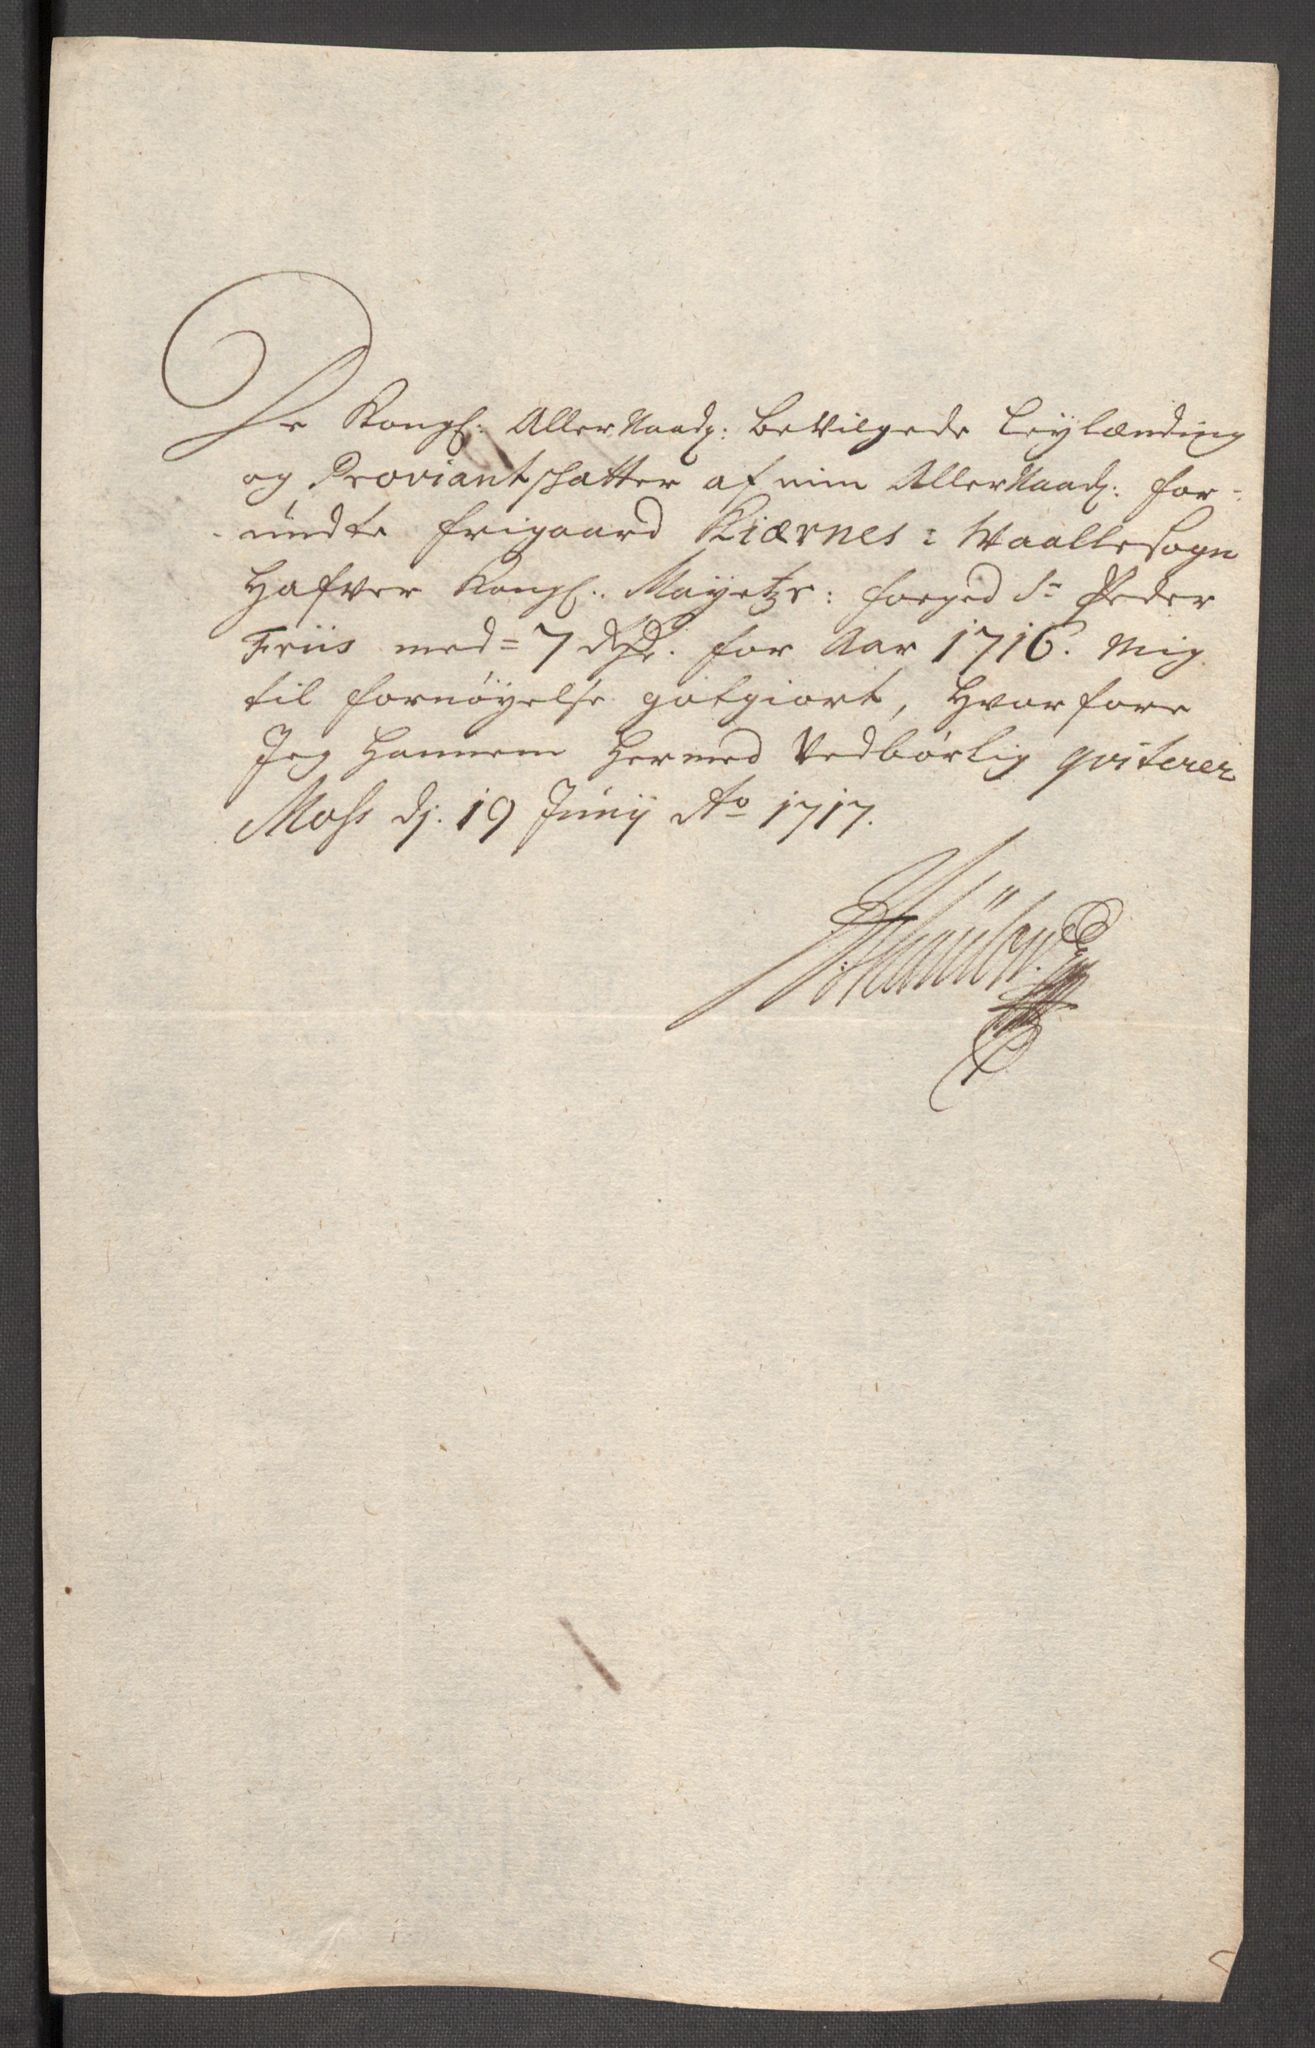 De Kongl: Aller Naadg: bevilgede Leylænding
og Proviant schatter af min Aller Naadg: for-
undte frigaard Kiærnes i Waalle Sogn
Hafver Kongl: Mayetz: foeged Sr Peder
Friis med = 7 rdr. for Aar 1716. Mig
til fornøyelse gotgiort, hvorfore
Jeg hannem hermed Vedbørlig qviterer
Moss dj: 19 Junij Ao 1717.